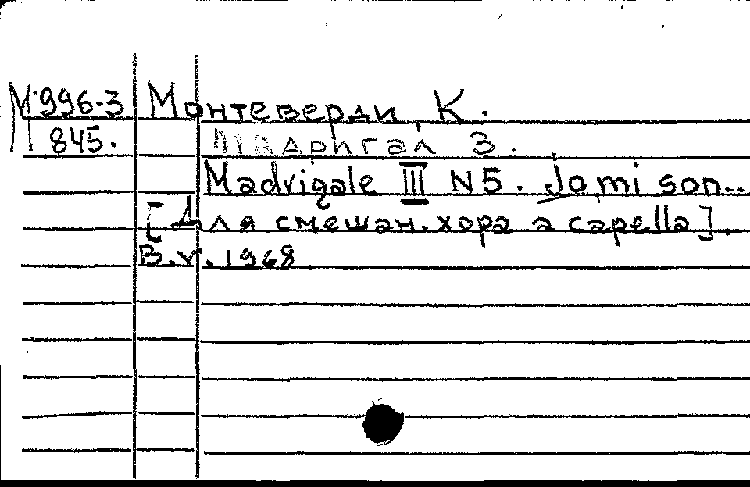 М 996-3 Монтеверди, К.
845. Мадригал 3.
Madrigale III N5. Jo mi son...
[Для смешан. хора a capella].
В.г. 1968